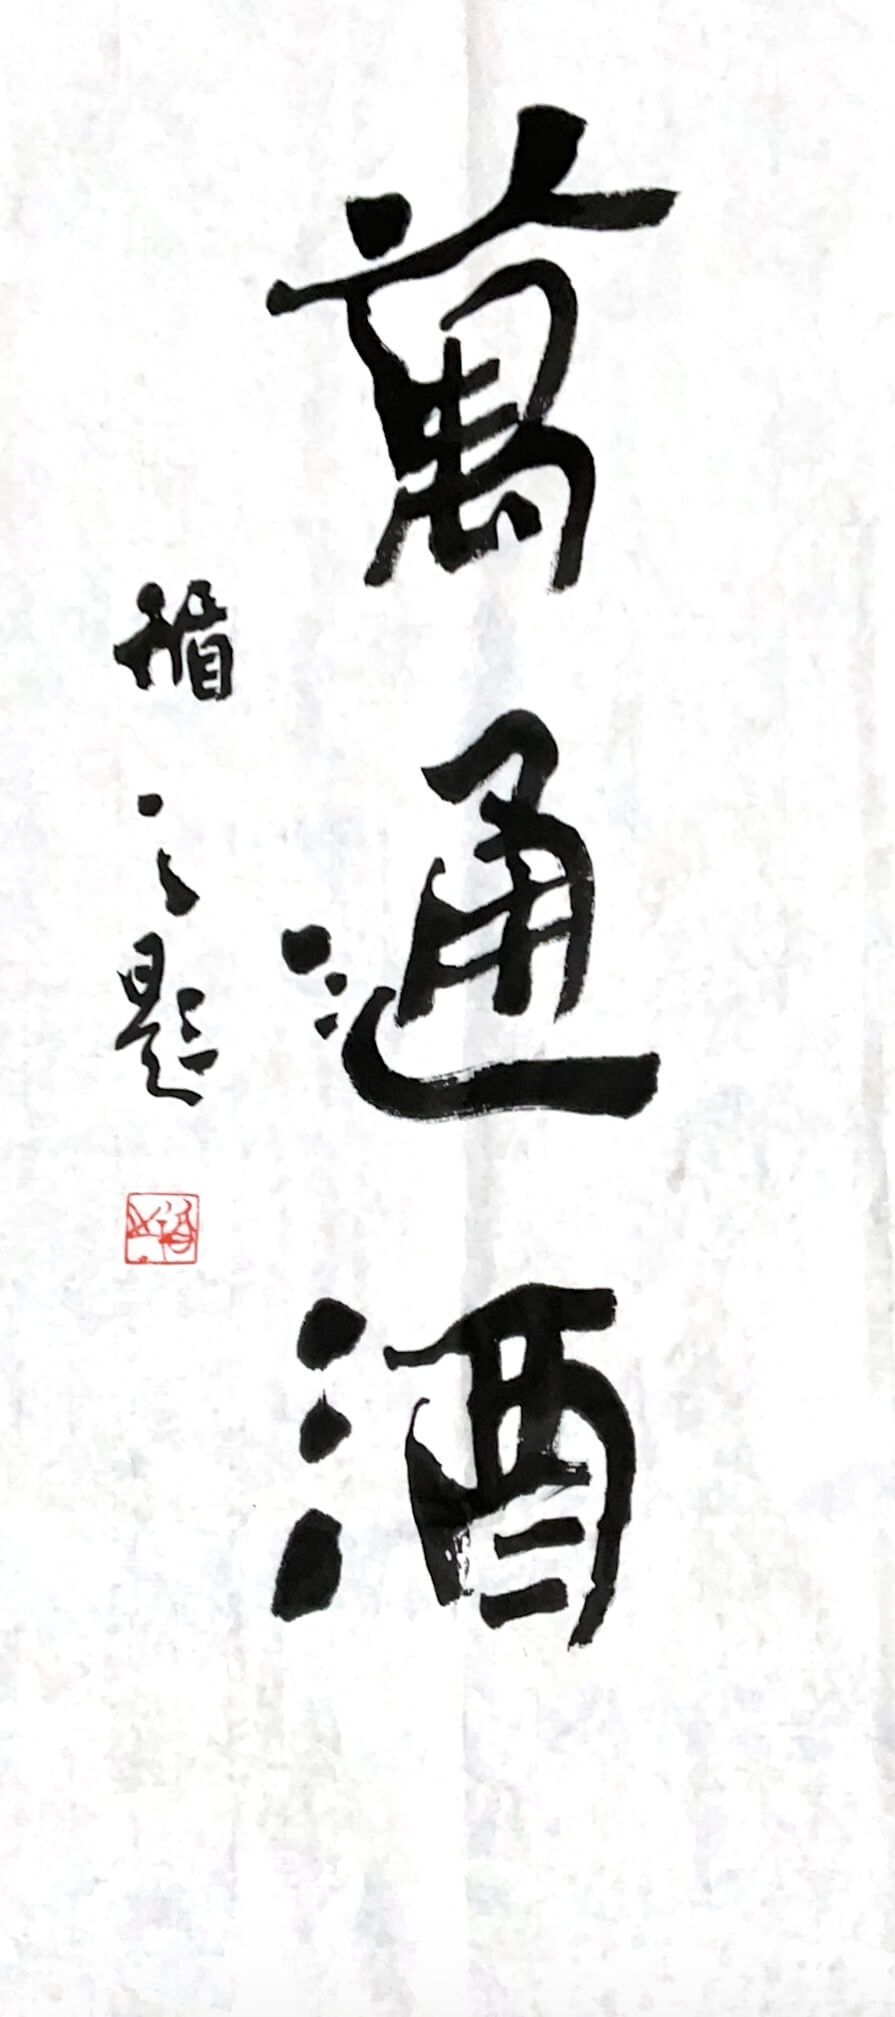 萬通酒
楯之題